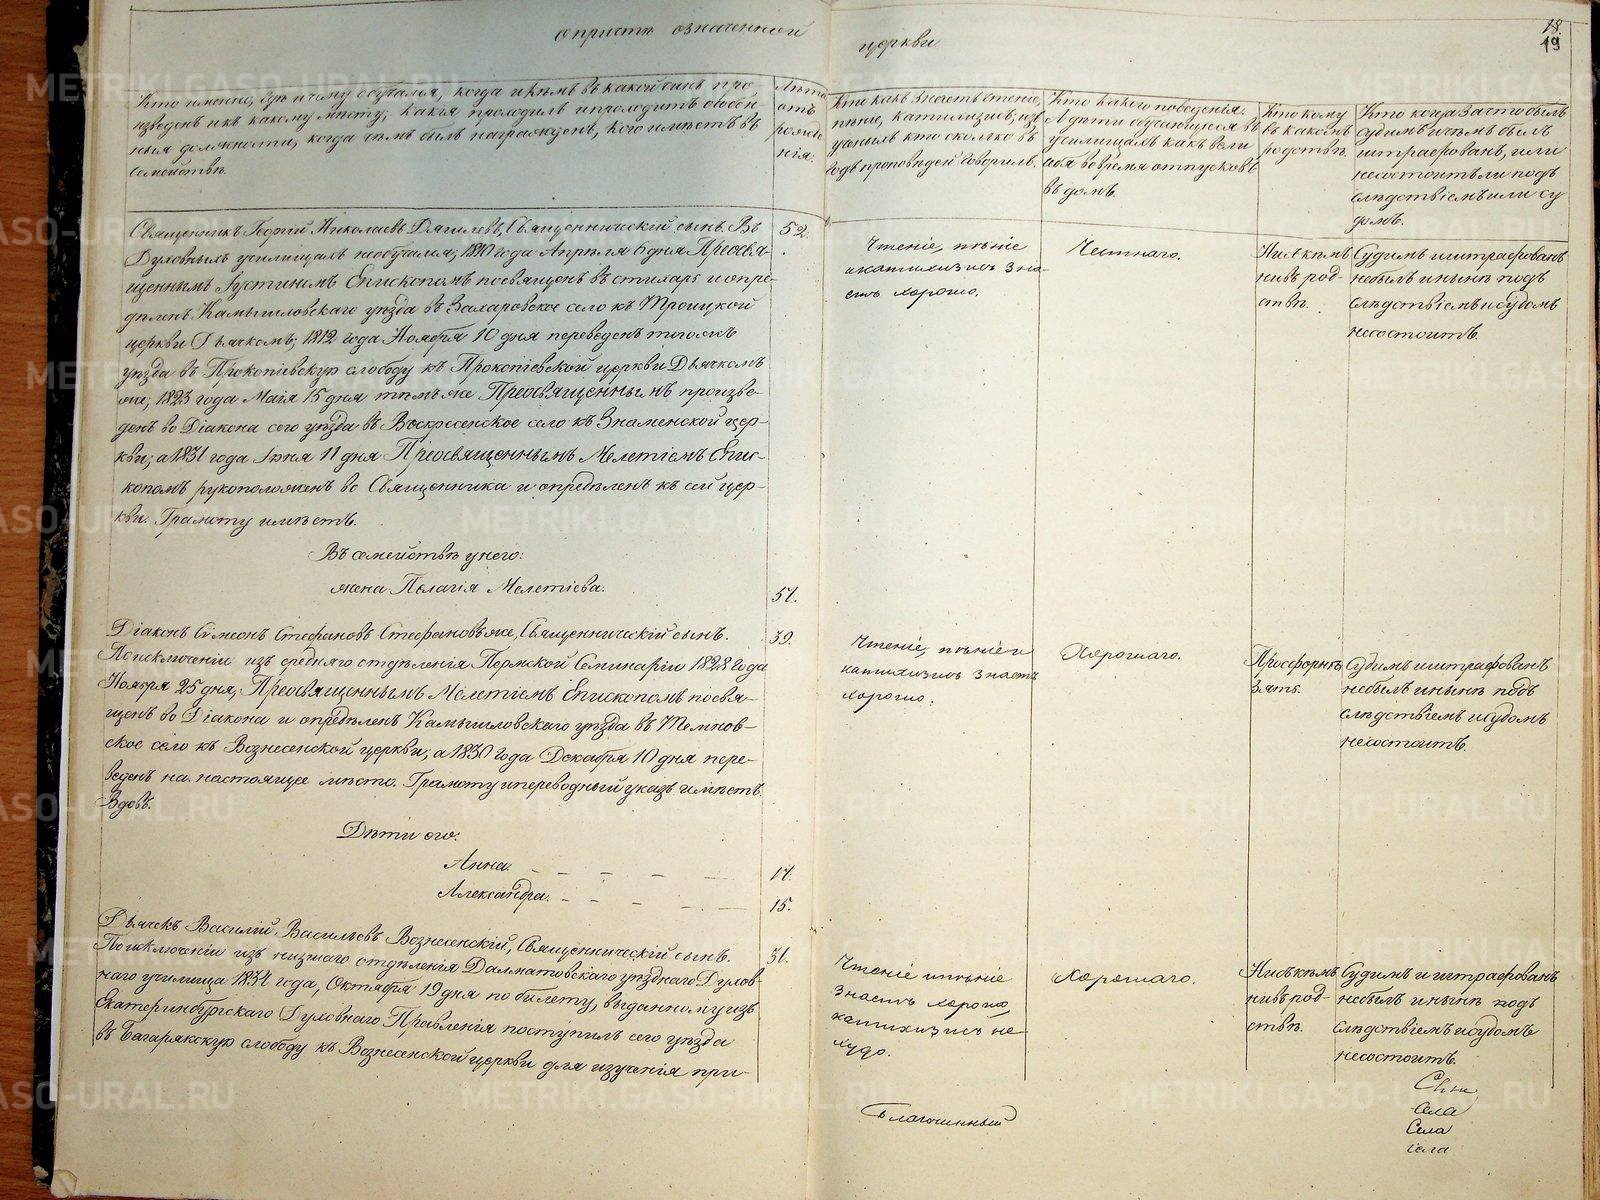 о причтѣ означенной церкви
18.
19
Кто именно, гдѣ и чему обучался, когда и кѣмъ въ какой чинъ про-
изведенъ и къ какому мѣсту; какія проходилъ и проходитъ особен-
ныя должности, когда чѣмъ былъ награжденъ, кого имѣетъ въ
семействѣ.
Лѣта
отъ
рожде-
нія.
Кто какъ знаетъ чтеніе,
пѣніе, катихизисъ,
ученыхъ кто сколько въ
годъ проповѣдей говорилъ.
Кто какого поведенія.
А дѣти обучающіеся въ
училищахъ какъ вели
себя во время отпусковъ
въ домъ.
Кто кому
въ какомъ
родствѣ.
Кто когда за что былъ
судимъ и чѣмъ былъ
штрафованъ, или
несостоитъ ли подъ
слѣдствіемъ или су
домъ.
Священникъ Георгій Николаевъ Дягилевъ, Священническій сынъ. Въ
Духовныхъ училищахъ необучался; 1810 года Апрѣля 6 дня Преосвя-
щеннымъ Іустиномъ Епископомъ посвященъ въ стихарь и опре-
дѣленъ Камышловскаго уѣзда въ Захаровское село къ Троицкой
церкви Дьячкомъ; 1812 года Ноября 10 дня переведенъ тогожъ
уѣзда въ Прокопіевскую слободу къ Прокопіевской церкви Дьячкомъ
же; 1823 года Маія 15 дня тѣмъ же Преосвященнымъ произве-
денъ во Діакона сего уѣзда въ Воскресенское село къ Знаменской цер-
кви; а 1831 года Іюня 11 дня Преосвященнымъ Мелетіемъ Епис-
копомъ рукоположенъ во Священника и опредѣленъ къ сей цер-
кви. Грамоту имѣетъ.
52.
Чтеніе, пѣніе
и катихизисъ зна-
етъ хорошо.
Честнаго.
Ни съ кѣмъ
нивъ род-
ствѣ.
Судимъ и штрафованъ
небылъ и нынѣ подъ
слѣдствіемъ и судомъ
несостоитъ.
Въ семействѣ у него:
жена Пелагія Мелетіева.
51.
Діаконъ Сѵмеонъ Стефановъ Стефановъ же, Священническій сынъ.
По исключеніи изъ средняго отдѣленія Пермской Семинаріи 1828 года
Ноября 25 дня, Преосвященнымъ Мелетіемъ Епископомъ посвя-
щенъ во Діакона и опредѣленъ Камышловскаго уѣзда въ Темнов-
ское село къ Вознесенской церкви; а 1830 года Декабря 10 дня пере-
веденъ на настоящее мѣсто. Грамоту и переводный указъ имѣетъ.
Вдовъ.
39.
Чтеніе, пѣніе и
катихизисъ знаетъ
хорошо.
Хорошаго.
Просфорнѣ
Зять.
Судимъ и штрафованъ
небылъ и нынѣ подъ
слѣдствіемъ и судомъ
несостоитъ.
Дѣти его:
Анна. 17.
Александра. 15.
Дьячекъ Василій Васильевъ Вознесенскій, Священническій сынъ.
По исключеніи изъ низшаго отдѣленія Далматовскаго уѣзднаго Духов-
наго училища 1834 года, Октября 19 дня по билету, выданному изъ
Екатеринбургскаго Духовнаго Правленія поступилъ сего уѣзда
въ Багарякскую слободу къ Вознесенской церкви для изученія при-
31.
Чтеніе и пѣніе
знаетъ хорошо,
катихизисъ не-
худо.
Хорошаго.
Ни съ кѣмъ
нивъ род-
ствѣ.
Судимъ и штрафованъ
небылъ и нынѣ подъ
слѣдствіемъ и судомъ
несостоитъ.
Благочинный
Села
Села
села
METRIKI.GASO-URAL.RU